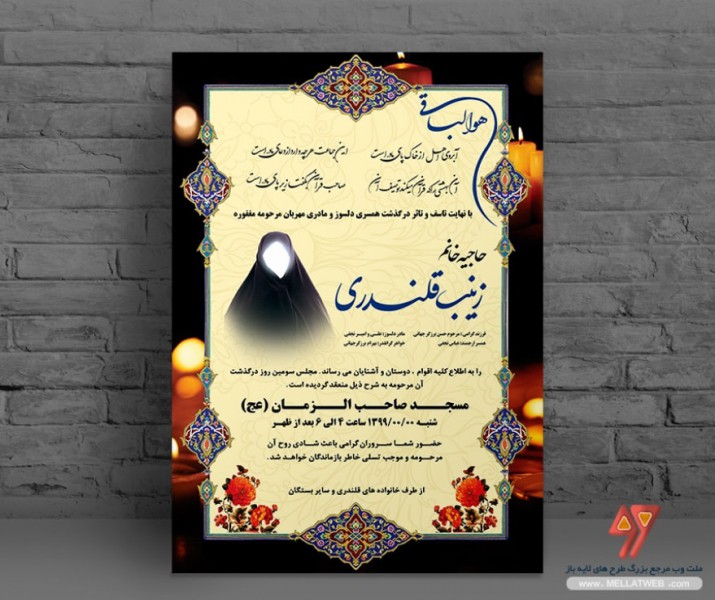 هوالباقی
آبروی اهل دل از خاک پای مادر است
این جماعت هر چه دارد از دعای مادر است
آن بهشتی را که قرآن میکند توصیف آن
صاحب قرآن بگفت زیر پای مادر است
با نهایت تاسف و تاثر درگذشت همسری دلسوز و مادری مهربان مرحومه مغفوره
حاجیه خانم
زینب قلندری
فرزند گرامی: مرحوم حسن برزگر جهانی
مادر دلسوز: علی و امیر نجفی
همسر ارجمند: عباس نجفی
خواهر گرانقدر: بهرام برزگر جهانی
را به اطلاع کلیه اقوام ، دوستان و آشنایان می رساند. مجلس سومین روز درگذشت
آن مرحومه به شرح ذیل منعقد گردیده است.
مسجد صاحب الزمان (عج)
شنبه ۱۳۹۹/۰۰/۰۰ ساعت ۴ الی ۶ بعد از ظهر
حضور شما سروران گرامی باعث شادی روح آن
مرحومه و موجب تسلی خاطر بازماندگان خواهد شد.
از طرف خانواده های قلندری و سایر بستگان
ملت وب مرجع بزرگ طرح های لایه باز
www.MELLATWEB.com